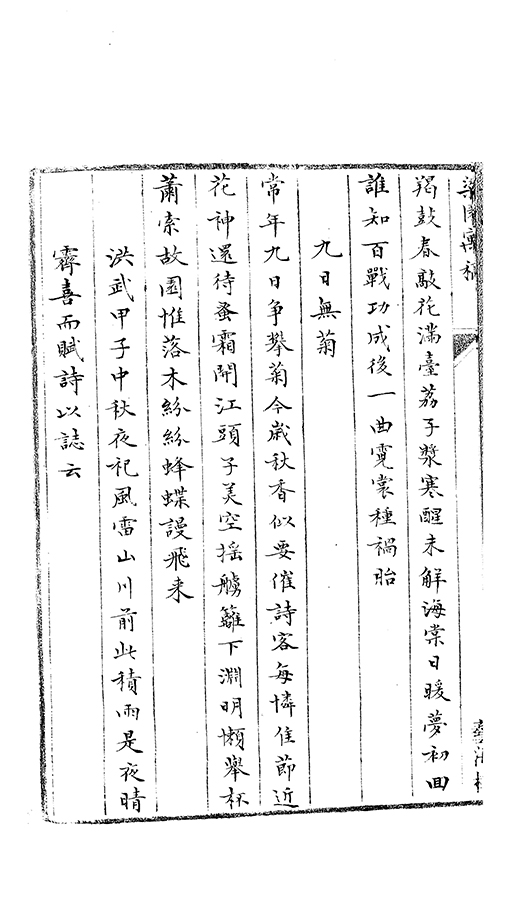 梁園寓稿
羯鼓春敲花滿臺荔子漿寒醒未解海棠日暖夢初回
誰知百戰功成後一曲霓裳種禍胎
九日無菊
常年九日争攀菊今歲秋香似要催詩客每憐佳節近
花神還待蚤霜開江頭子美空揺觴籬下淵明懶舉杯
蕭索故園惟落木紛紛蜂蝶謾飛来
洪武甲子中秋夜祀風雷山川前此積雨是夜晴
霽喜而賦詩以誌云